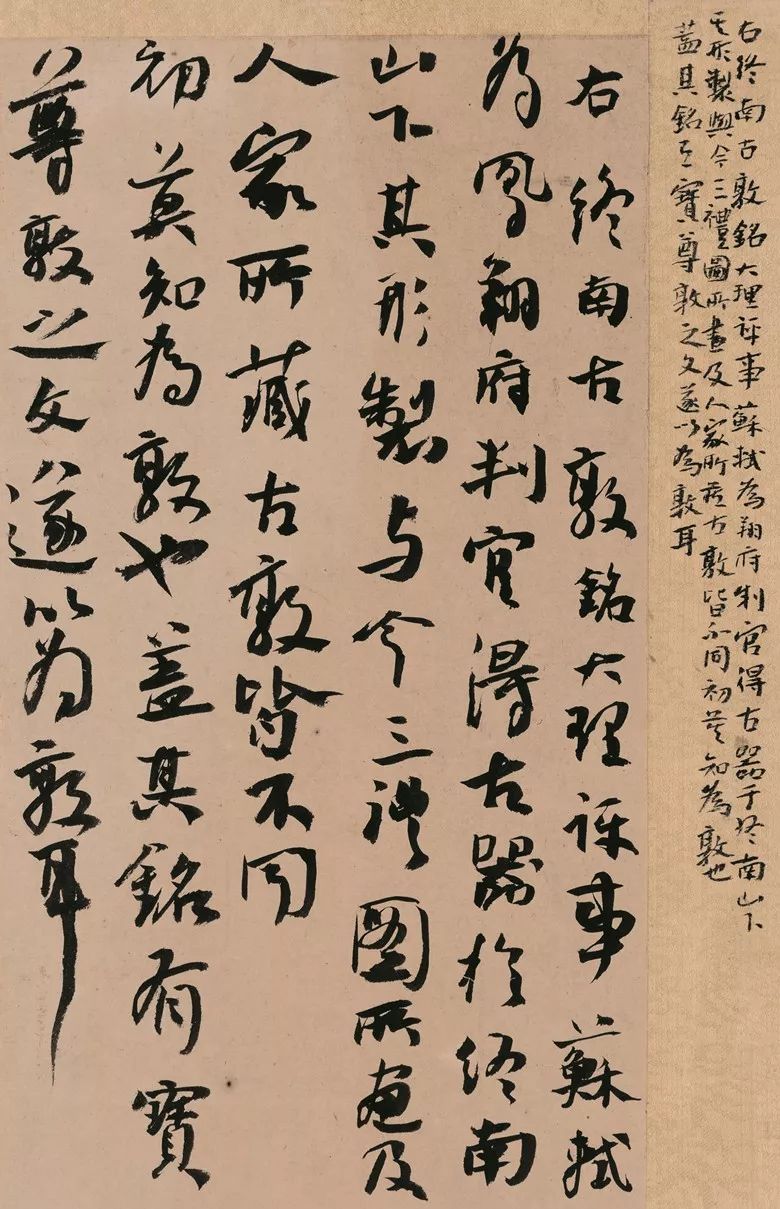 右終南古敦銘大理評事蘇軾為翔府判官得古器于終南山下
其形製與今三禮圖所畫及人家所藏古敦皆不同初莫知為敦也
蓋其銘有寶尊敦之文遂以為敦耳
右終南古敦銘大理評事蘇軾
為鳳翔府判官得古器於終南
山下其形製与今三禮圖所畫及
人家所藏古敦皆不同
初莫知為敦也盖其銘有寶
尊敦之文遂以為敦耳